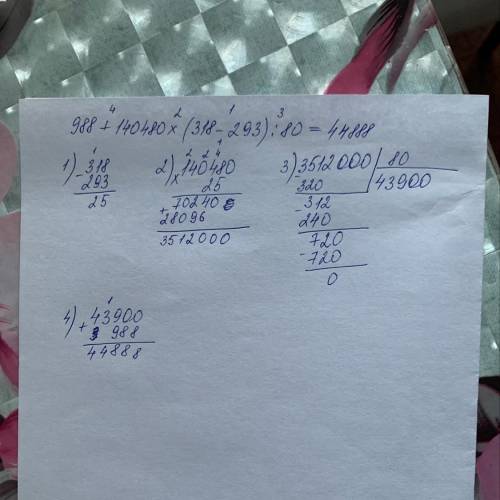 4 2 1 3
988 + 140480 × (318 - 293) : 80 = 44888
1) -318
293
25
2) ×140480
25
+70240
28096
3512000
3) -3512000 | 80
320 | 43900
-312
240
720
-720
0
4) +43900
988
44888